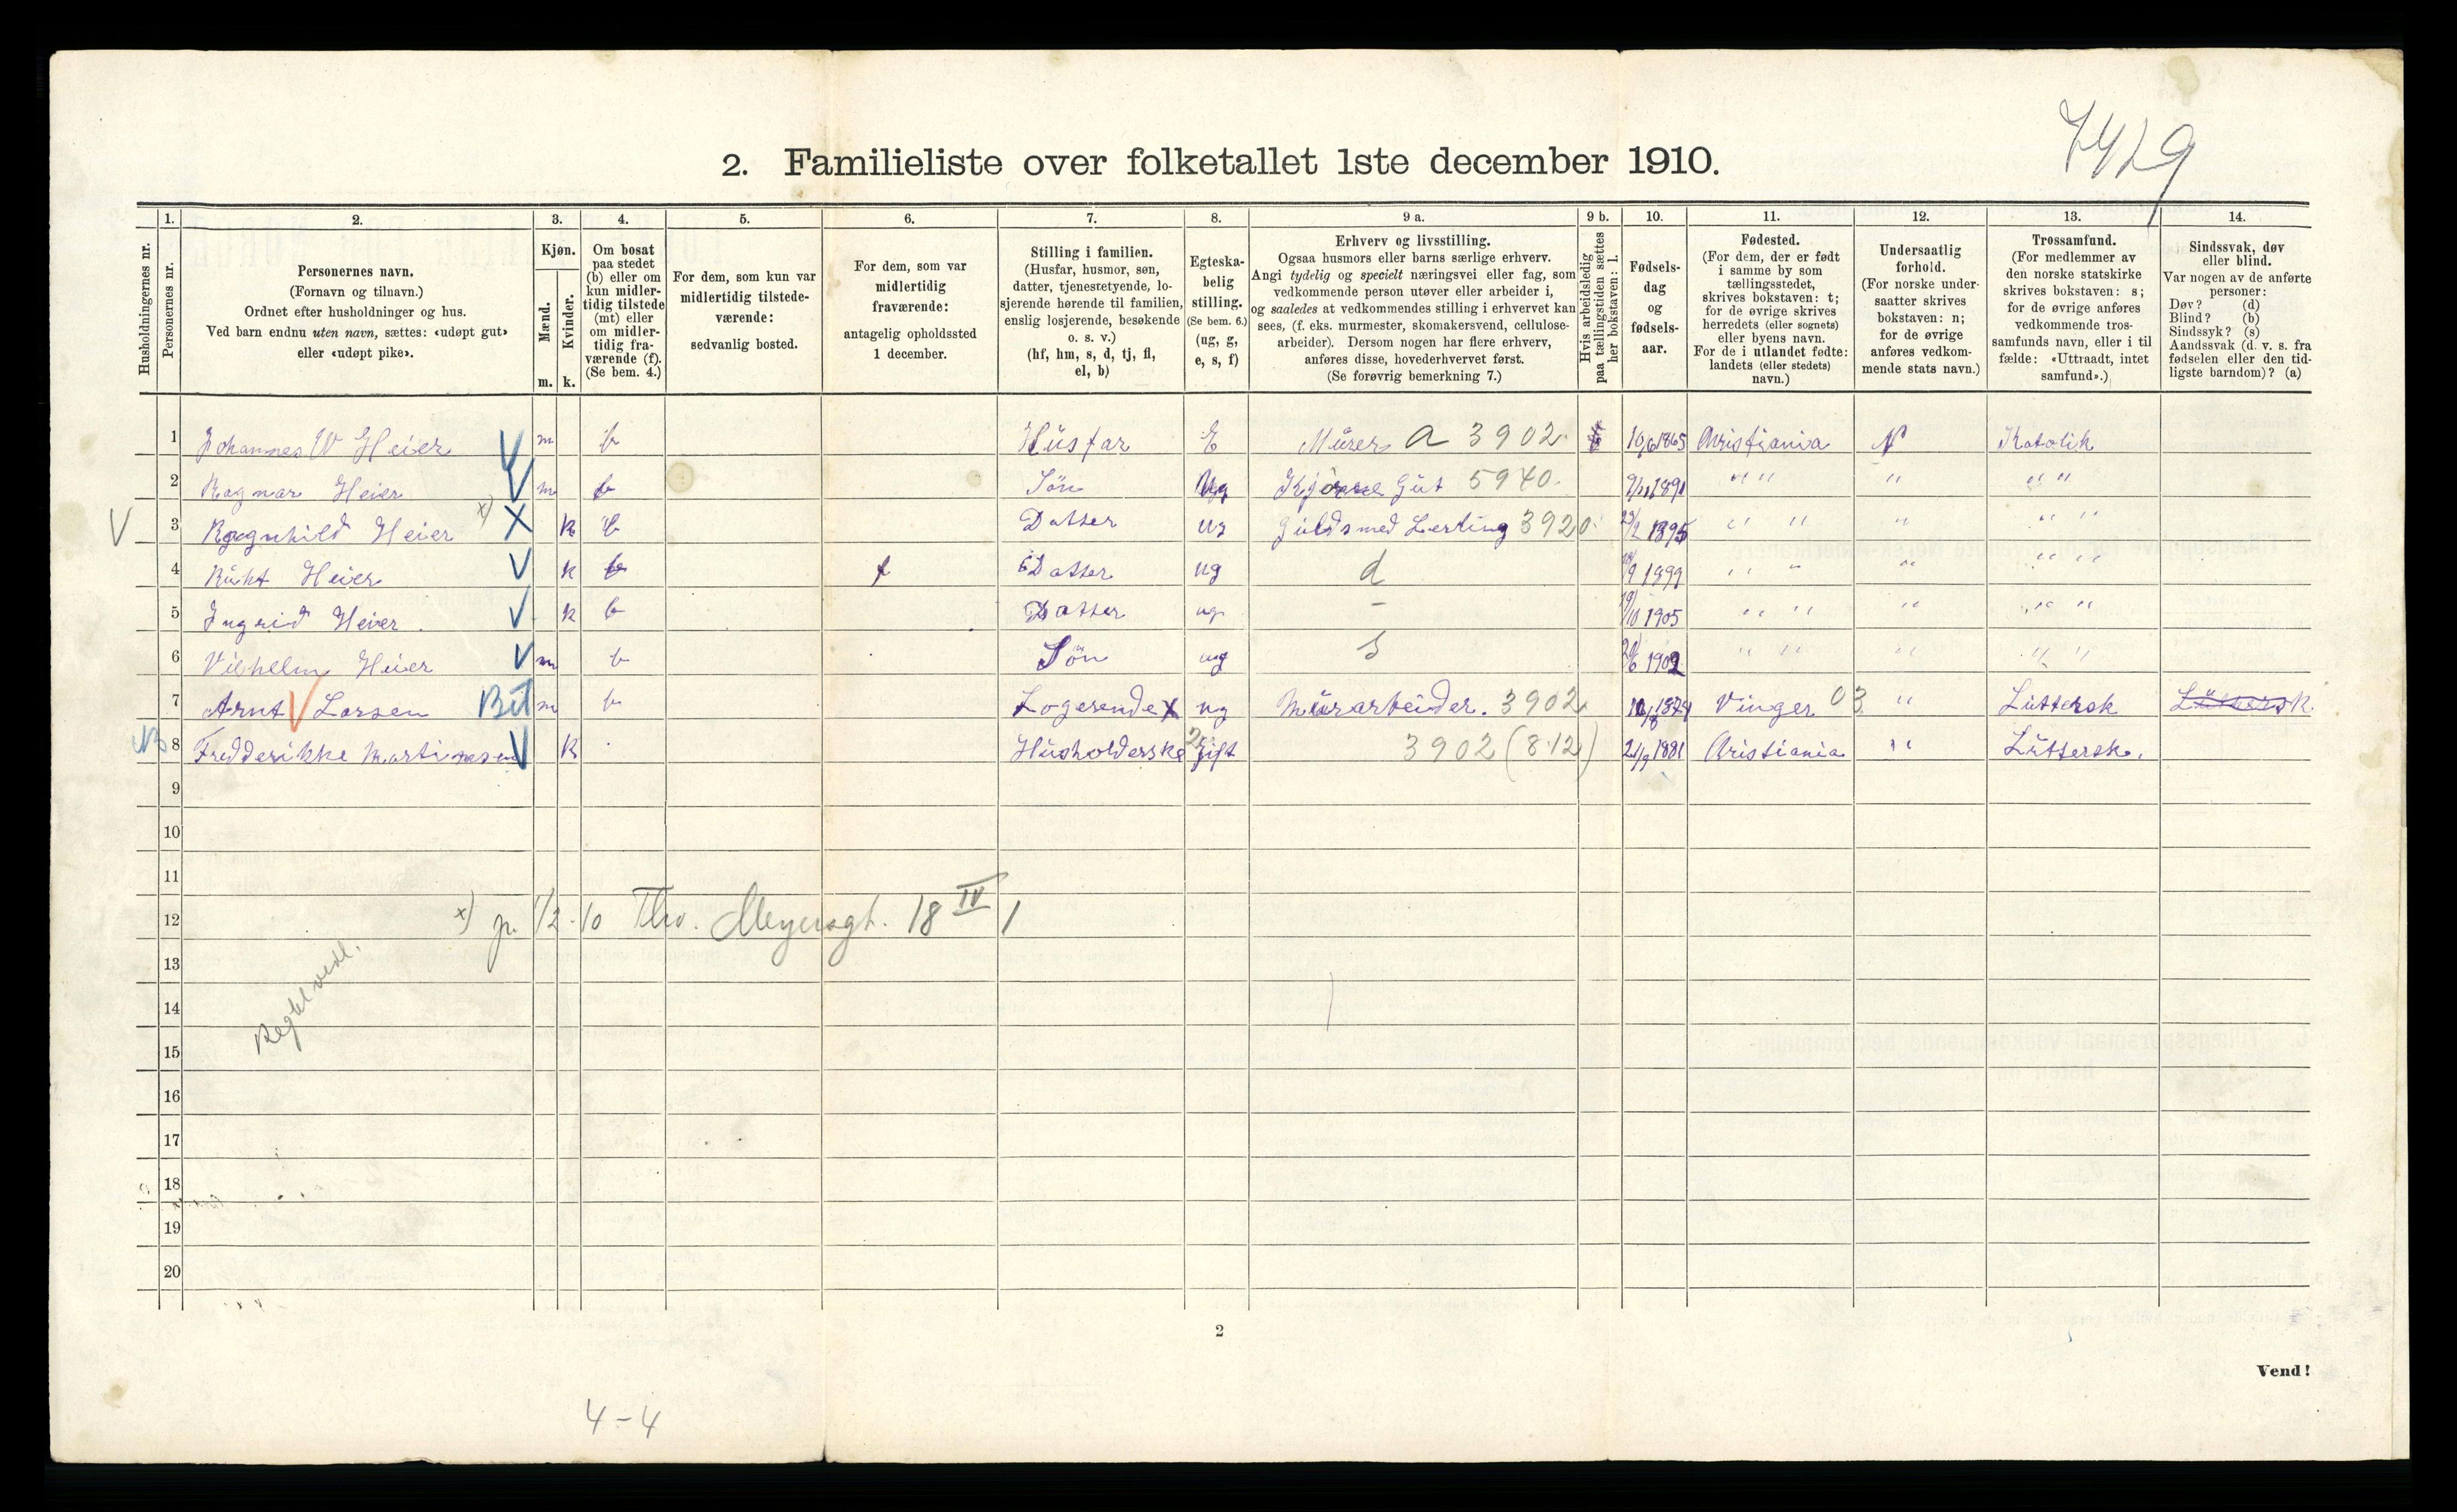 7429
2. Familieliste over folketallet 1ste december 1910.
Husholdningernes nr.
1.
Personernes nr.
2.
Personernes navn.
(Fornavn og tilnavn.)
Ordnet efter husholdninger og hus.
Ved barn endnu uten navn, sættes: «udøpt gut»
eller «udøpt pike».
3.
Kjøn.
Mænd.
Kvinder.
m. k.
4.
Om bosat
paa stedet
(b) eller om
kun midler-
tidig tilstede
(mt) eller
om midler-
tidig fra-
værende (f).
(Se bem. 4.)
5.
For dem, som kun var
midlertidig tilstede-
værende:
sedvanlig bosted.
6.
For dem, som var
midlertidig
fraværende:
antagelig opholdssted
1 december.
7.
Stilling i familien.
(Husfar, husmor, søn,
datter, tjenestetyende, lo-
sjerende hørende til familien,
enslig losjerende, besøkende
o. s. v.)
(hf, hm, s, d, tj, fl,
el, b)
8.
Egteska-
belig
stilling.
(Se bem. 6.)
(ug, g,
e, s, f)
9 a.
Erhverv og livsstilling.
Ogsaa husmors eller barns særlige erhverv.
Angi tydelig og specielt næringsvei eller fag, som
vedkommende person utøver eller arbeider i,
og saaledes at vedkommendes stilling i erhvervet kan
sees, (f. eks. murmester, skomakersvend, cellulose-
arbeider). Dersom nogen har flere erhverv,
anføres disse, hovederhvervet først.
(Se forøvrig bemerkning 7.)
9 b.
Hvis arbeidsledig
paa tællingstiden sættes
her bokstaven: l.
10.
Fødsels-
dag
og
fødsels-
aar.
11.
Fødested.
(For dem, der er født
i samme by som
tællingsstedet,
skrives bokstaven: t;
for de øvrige skrives
herredets (eller sognets)
eller byens navn.
For de i utlandet fødte:
landets (eller stedets)
navn.)
12.
Undersaatlig
forhold.
(For norske under-
saatter skrives
bokstaven: n;
for de øvrige
anføres vedkom-
mende stats navn.)
13.
Trossamfund.
(For medlemmer av
den norske statskirke
skrives bokstaven: s;
for de øvrige anføres
vedkommende tros-
samfunds navn, eller i til
fælde: «Uttraadt, intet
samfund».)
14.
Sindssvak, døv
eller blind.
Var nogen av de anførte
personer:
Døv? (d)
Blind? (b)
Sindssyk? (s)
Aandssvak (d. v. s. fra
fødselen eller den tid-
ligste barndom)? (a)
1 Johannes W Heier V m b Husfar E Murer a 3902 10/6 1865 Christiania N Katolik
2 Ragnar Heier V m b Søn ug Kjøre Gut 5940. 1891 " " " " "
V 3 Ragnhild Heier x) X k b Datter ug Guldsmed Lerling 3920. 23/2 1895 " " " " "
4 Ruht Heier V k b f Datter ug d 1899 " " " " "
5 Ingrid Heier V k b Datter ug - 19/10 1905 " " " " "
6 Vilhelm Heier V m b Søn ug s 1902 " " " " "
7 Arnt V Larsen Bet m b Logerende X ug Murarbeider. 3902 1874 Vinger 03 " Luttersk Luttersk
NB 8 Fredderikke Martinesen V k Husholderske gift 3902 (8.12) 21/9 1881 Cristiania " Luttersk.
9
10
11
12 x) p. 1/2-10 Thv. Meyersgt. 18 IV 1
13
14
15
16
17
18
19
20
2
Vend!
4-4